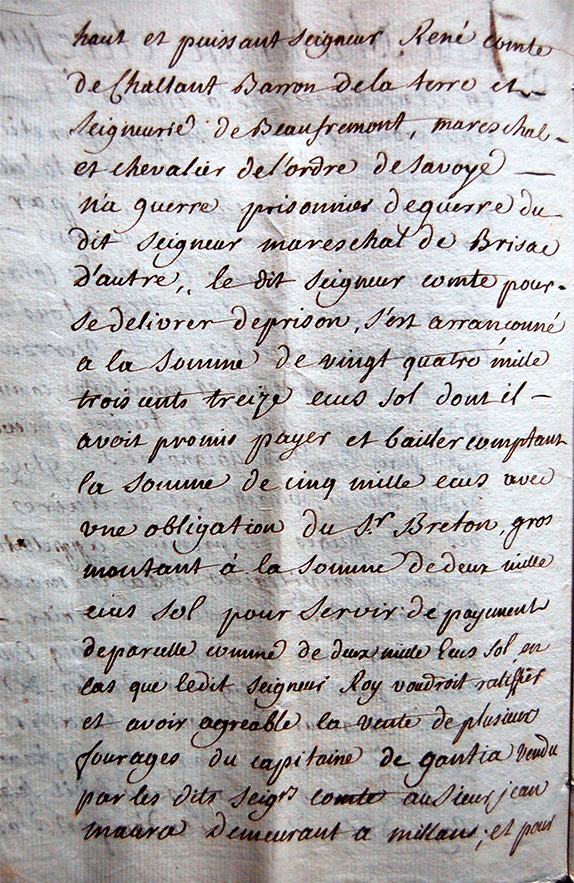 haut et puissant seigneur René comte
de Challant Barron de la terre et
seigneurie de Beaufremont, mareschal
et chevalier de l'ordre de Savoye —
n'a guerre prisonnier de guerre du
dit seigneur mareschal de Brisac
d'autre, le dit seigneur comte pour
se delivrer de prison, s'est arranconné
a la somme de vingt quatre mille
trois cents treize ecus sol dont il —
avoit promis payer et bailler comptant
la somme de cinq mille ecus avec
une obligation du Sr. Breton, gros
montant á la somme de deux mille
ecus sol pour servir de payement
de parcelle comme de deux mille Ecus sol en
cas que ledit seigneur Roy voudroit ratiffier
et avoir agreable la vente de plusieur
fourages du capitaine de gantia vendu
par les dits seigrs comte au sieur jean
maura demeurant a millans; et pour